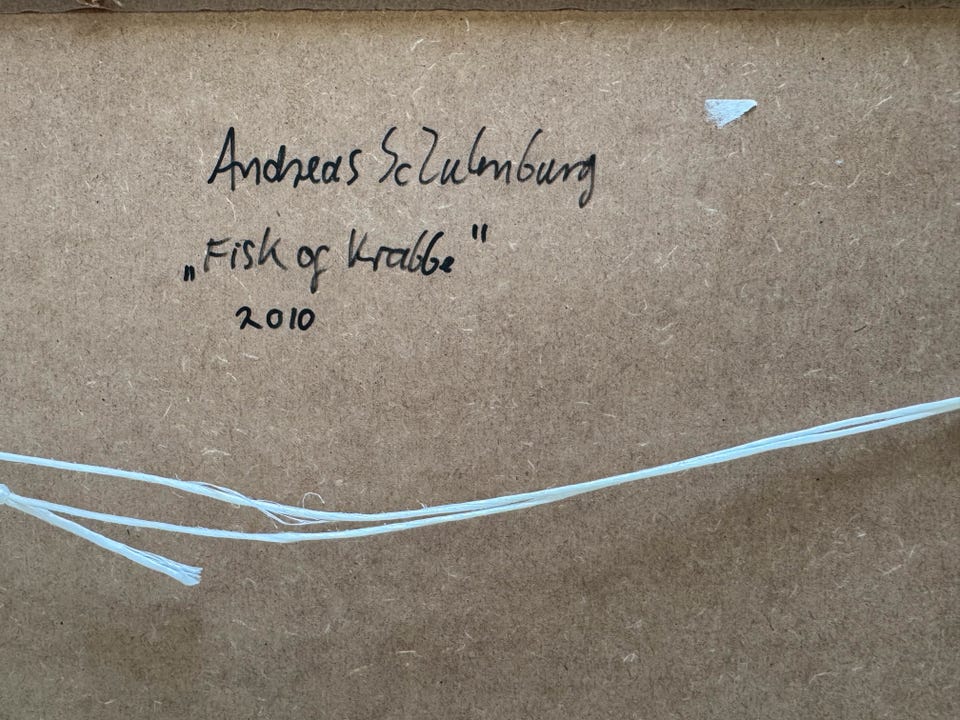 Andreas Schulenburg
„Fisk og Krabbe"
2010